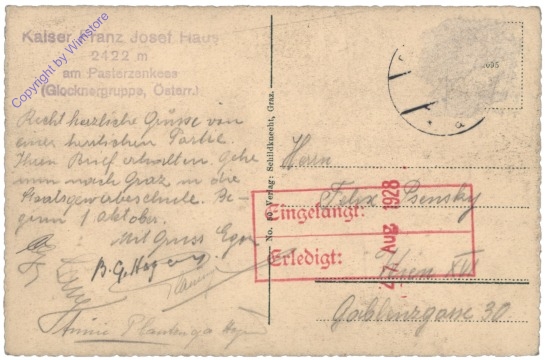 Kaiser Franz Josef Haus
2422 m
am Pasterzenkees
(Glocknergruppe, Österr.)
Copyright by Wimstore
Recht herzliche Grüsse von
einer herrlichen Partie.
Ihren Brief erhalten. Gehe
nun nach Graz in die
Staatsgewerbeschule. Be-
ginn 1 Oktober.
Mit Gruss Egon
B. G.
Annie
No. 90 Verlag: Schildknecht, Graz.
Herrn
Felix
Wien XVI
Gablenzgasse 30.
Eingelangt:
Erledigt:
AUG 1928